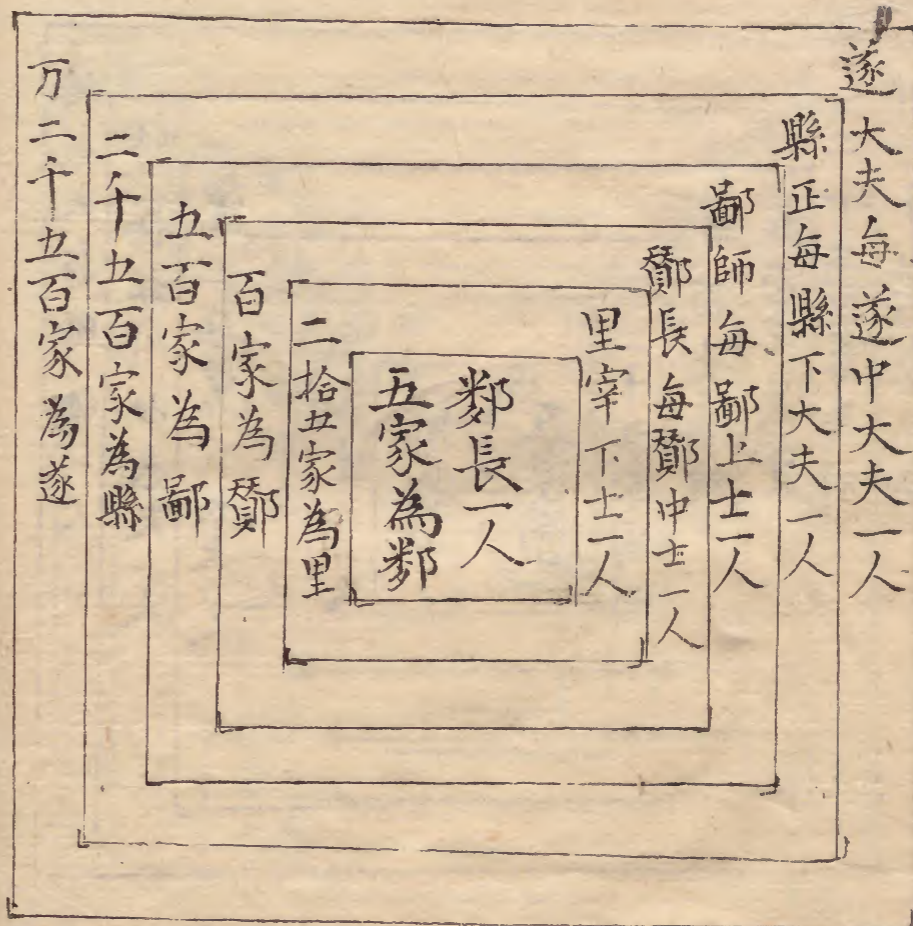 遂大夫每遂中大夫一人
縣正每縣下大夫一人
鄙師每鄙上士一人
酂長每酂中士一人
里宰下士一人
鄰長一人
五家為鄰
二拾五家為里
百家為酂
五百家為鄙
二千五百家為縣
万二千五百家為遂